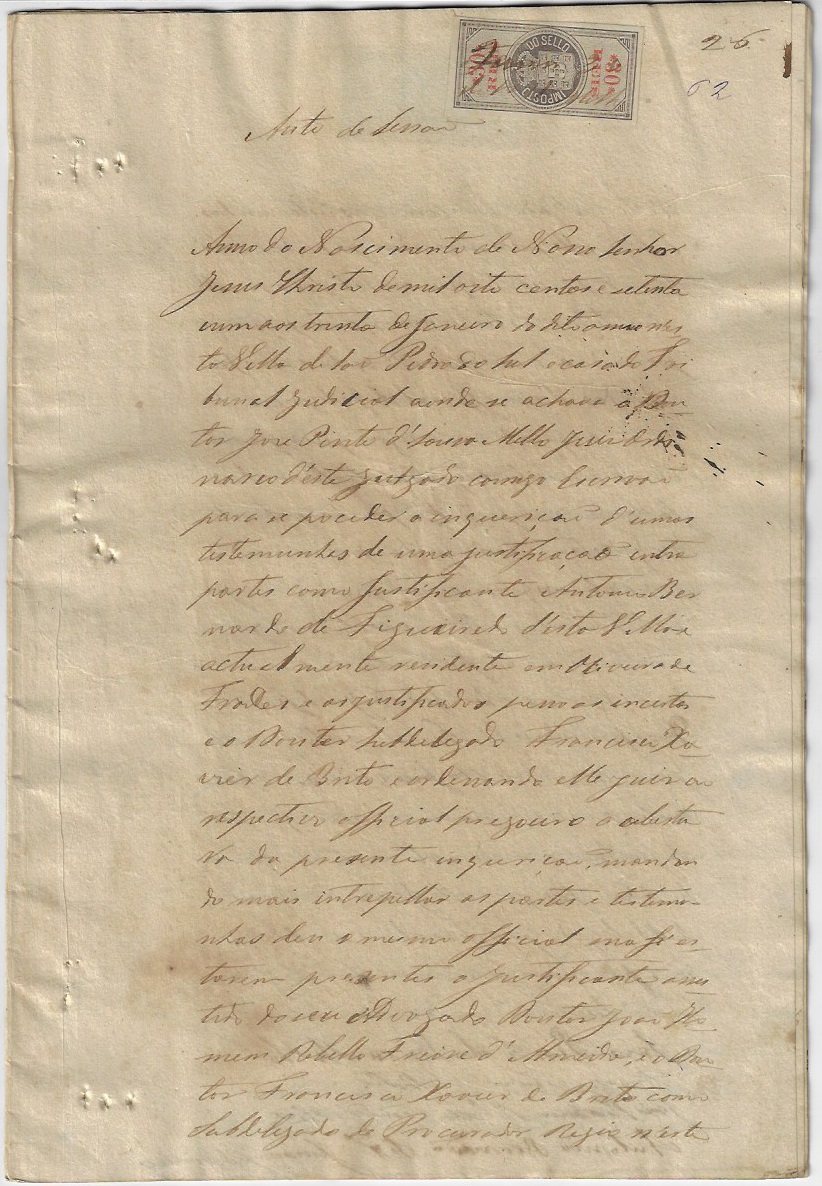 26
62
DO SELLO
IMPOSTO
*80* REIS
*80* REIS
Auto de
Anno do Nascimento de Nosso Senhor
Jesus Christo de mil oito centos e setenta
e um aos trinta de Janeiro do dito anno nes
ta Villa de São Pedro do Sul e casa do Tri
bunal Judicial aonde se achava o Dou
tor José Pinto d'Sousa Mello Juiz Ordi
nario d'este Julgado comigo Escrivão
para se proceder a inquerição d'umas
testemunhas de uma justificação entre
partes como Justificante Antonio Ber
nardo de Figueiredo d'esta Villa
actualmente residente em Oliveira de
Frades e os justificados pessoas incertas
e o Doutor Subdelegado Francisco Xa
vier de Brito e ordenando elle Juiz ao
respectivo official pregoeiro a abertu
ra da presente inquerição, mandan
do mais intrepellar as partes e testemu-
nhas deu o mesmo official sua fé es
tarem presentes o Justificante assis
tido do seu Advogado Doutor João Ho
mem Rebello Freire d'Almeida, e o Dou
tor Francisco Xavier de Brito como
Subdelegado do Procurador Regio n'este